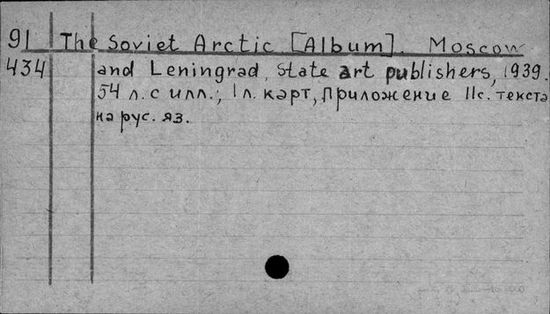 91 The Soviet Arctic [Album]. Moscow
434 and Leningrad, State art publishers, 1939.
54 л. с илл.; 1 л. карт, Приложение 11с. текста
на рус. яз.